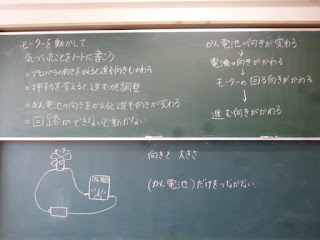 モーターを動かして
気づいたことをノートに書こう
○プロペラの向きをかえると進む向きもかわる
○押す力を変えると進む力を調整
○かん電池の向きをかえると進む向きが変わる
○回路ができないと動かない
かん電池の向きが変わる
電流の向きがかわる
モーターの回る向きがかわる
進む向きがかわる
向きと大きさ
(かん電池)だけをつながない